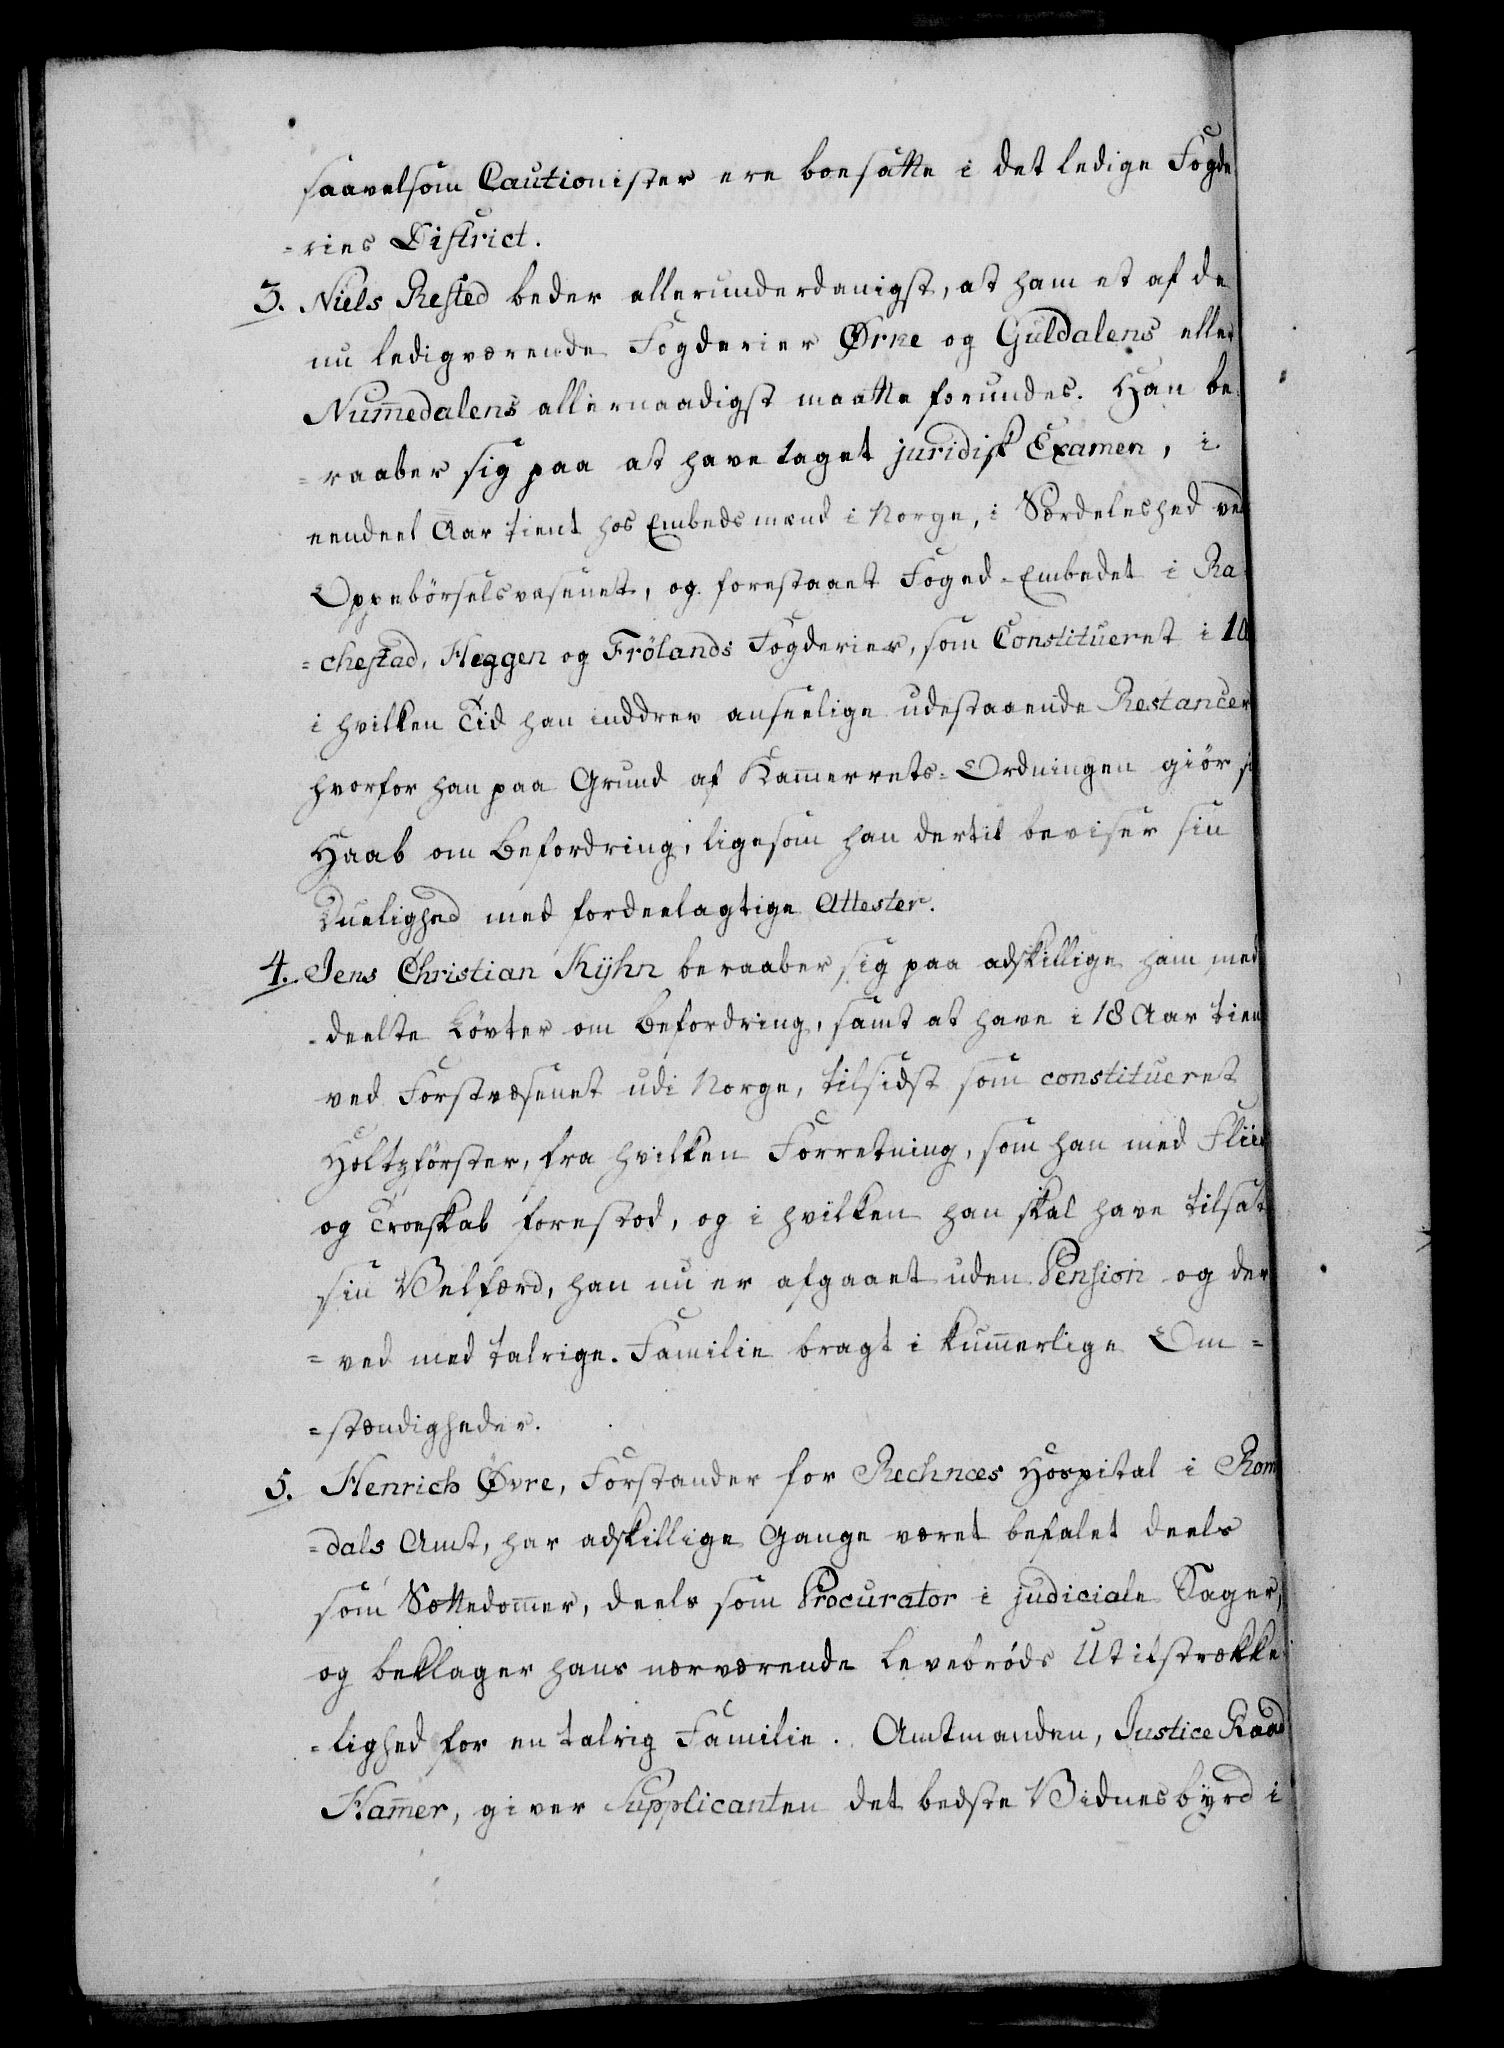 saavelsom Cautionister ere boesatte i det ledige Fogde
-ries District.
3. Niels Rested beder allerunderdanigst, at ham et af de
nu ledigværende Fogderier Ørke og Guldalens eller
Num̄edalens allernaadigst maatte forundes. Han be
-raaber sig paa at have taget juridisk Examen, i
eendeel Aar tient hos Embedsmænd i Norge, i Særdeleshed ved
Oppebörselsvæsenet, og forestaaet Foged-Embedet i Ra
=chestad, Heggen og Frölands Fogderier, som Constitueret i
i hvilken Tid han inddrev anseelige udestaaende Restancer
hvorfor han paa Grund af Kam̄errets-Ordningen giör
Haab om Befordring, ligesom han dertil beviser sin
Duelighed med fordeelagtige Attester.
4. Jens Christian Kÿhn beraaber sig paa adskillige ham med
-deelte Løvter om Befordring, samt at have i 18 Aar tien
ved Forstvæsenet udi Norge, tilsidst som constitueret
Holtzförster, fra hvilken Forretning, som han med Fliid
og Troeskab forestod, og i hvilken han skal have tilsat
sin Velfærd, han nu er afgaaet uden Pension og der
=ved med talrige Familie bragt i kum̄erlige Om=
=stændigheder.
5. Henrich Övre, Forstander for Rechnces Hospital i Rom
=dals Amt, har adskillige Gange været befalet deels
som Sættedom̄er, deels som Procurator i judiciale Sager,
og beklager hans nærværende Levebrøds Utilstrække
=lighed for en talrig Familie. Amtmanden, Justice Raad
Ham̄er, giver Supplicanten det bedste Vidnesbÿrd i